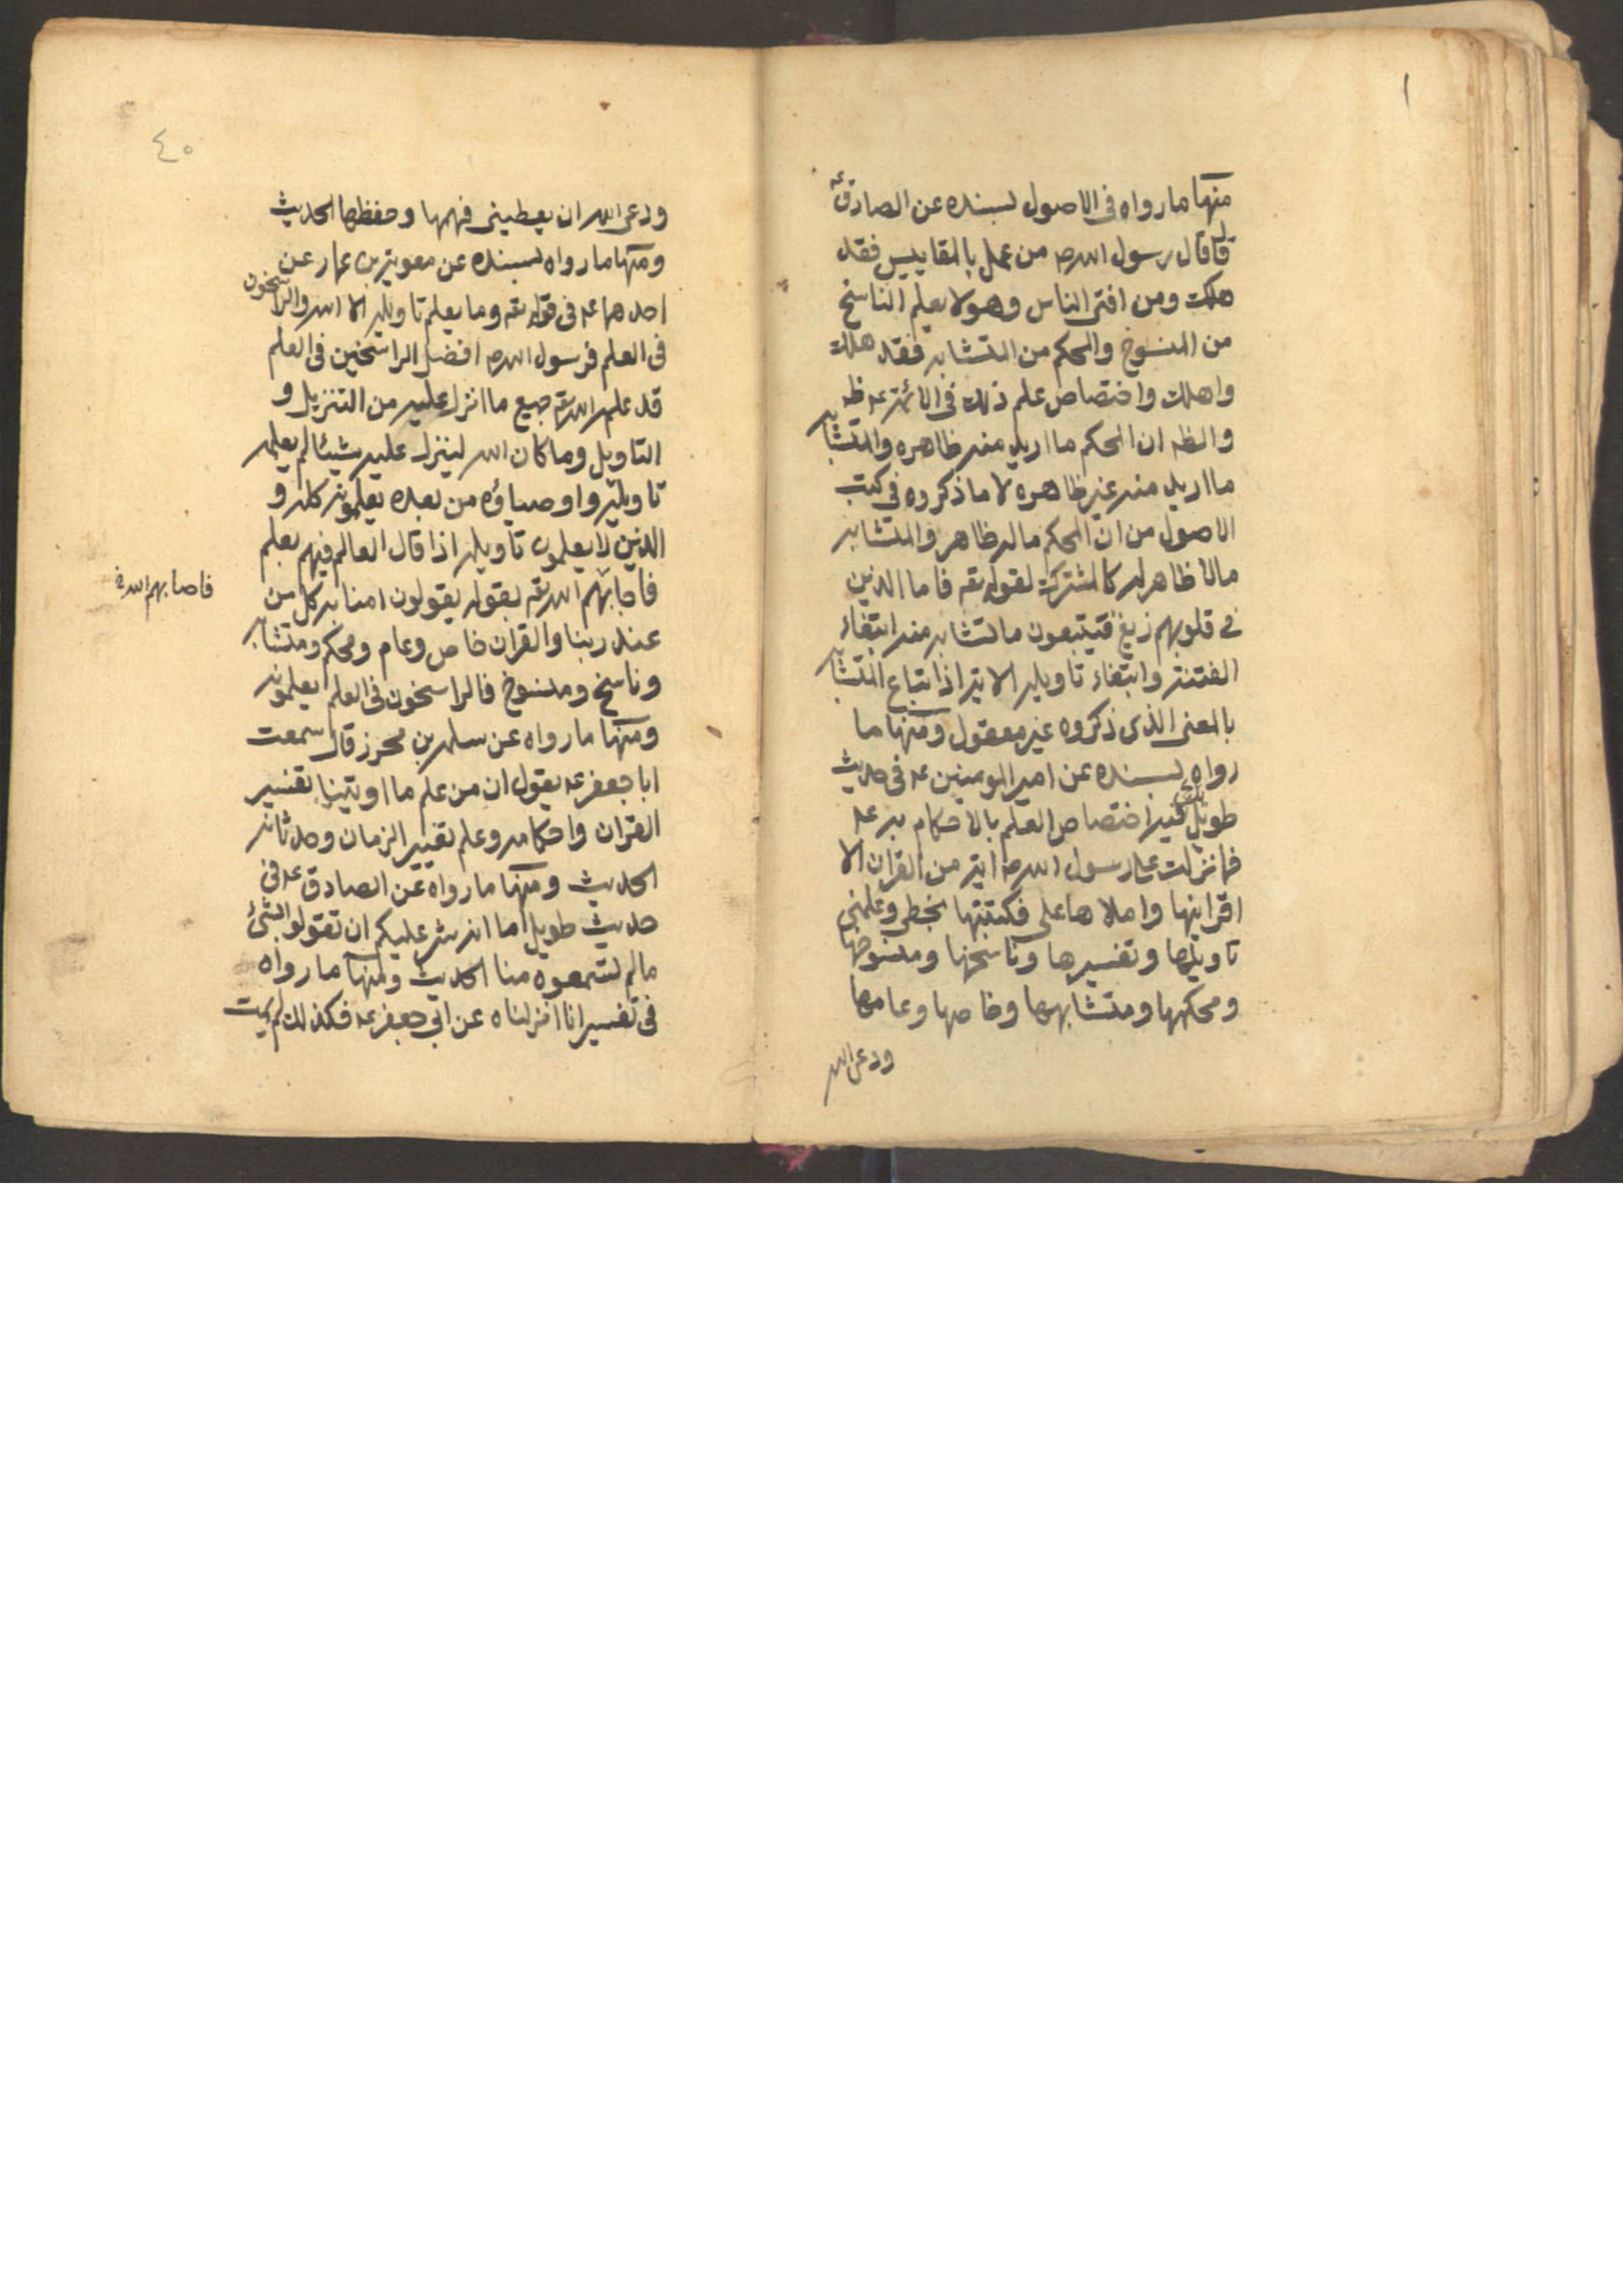 ١
منها ما رواه فى الاصول بسنده عن الصادق عه
قا قال رسول الله ص من عمل بالمقاييس فقد
هلك ومن افتى الناس وهو لا يعلم الناسخ
من المنسوخ والمحكم من المتشابه فقد هلك
واهلك واختصاص علم ذلك فى الائمة عه ظه
والظه ان المحكم ما اريد منه ظاهره والمتشابه
ما اريد منه غير ظاهره لا ما ذكروه فى كتب
الاصول من ان المحكم ما له ظاهر والمتشابه
ما لا ظاهر له كالمشترك لقوله تعه فاما الذين
فى قلوبهم زيغ فيتبعون ما تشابه منه ابتغاء
الفتنة وابتغاء تاويله الاية اذ اتباع المتشابه
بالمعنى الذى ذكروه غير معقول ومنها ما
رواه بسنده عن امير المومنين عه فى حديث
طويل فيه اختصاص العلم بالاحكام به عه
فما نزلت على رسول الله ص اية من القران الا
اقرانيها واملاها على فكتبتها بخطى وعلمنى
تاويلها وتفسيرها وناسخها ومنسوخها
ومحكمها ومتشابهها وخاصها وعامها
ودعى الله
٤٠
ودعى الله ان يعطينى فهمها وحفظها الحديث
ومنها ما رواه بسنده عن معوية بن عمار عن
احدهما عه فى قوله تعه وما يعلم تاويله الا الله والراسخون
فى العلم فرسول الله ص افضل الراسخين فى العلم
قد علمه الله تعه جميع ما انزل عليه من التنزيل و
التاويل وما كان الله لينزل عليه شيئا لم يعلمه
تاويله واوصياؤه من بعده يعلمونه كله و
الذين لا يعلمون تاويله اذا قال العالم فيهم بعلم
فاجابهم الله تعه بقوله يقولون امنا به كل من
فاصابهم الله خ
عند ربنا والقران خاص وعام ومحكم ومتشابه
وناسخ ومنسوخ فالراسخون فى العلم يعلمونه
ومنها ما رواه عن سلمه بن محرز قال سمعت
ابا جعفر عه يقول ان من علم ما اوتينا تفسير
القران واحكامه وعلم تغيير الزمان وحدثانه
الحديث ومنها ما رواه عن الصادق عه فى
حديث طويل اما انه شر عليكم ان تقولوا بشئ
ما لم تسمعوه منا الحديث ومنها ما رواه
فى تفسير انا انزلناه عن ابى جعفر عه فكذلك لم يمت